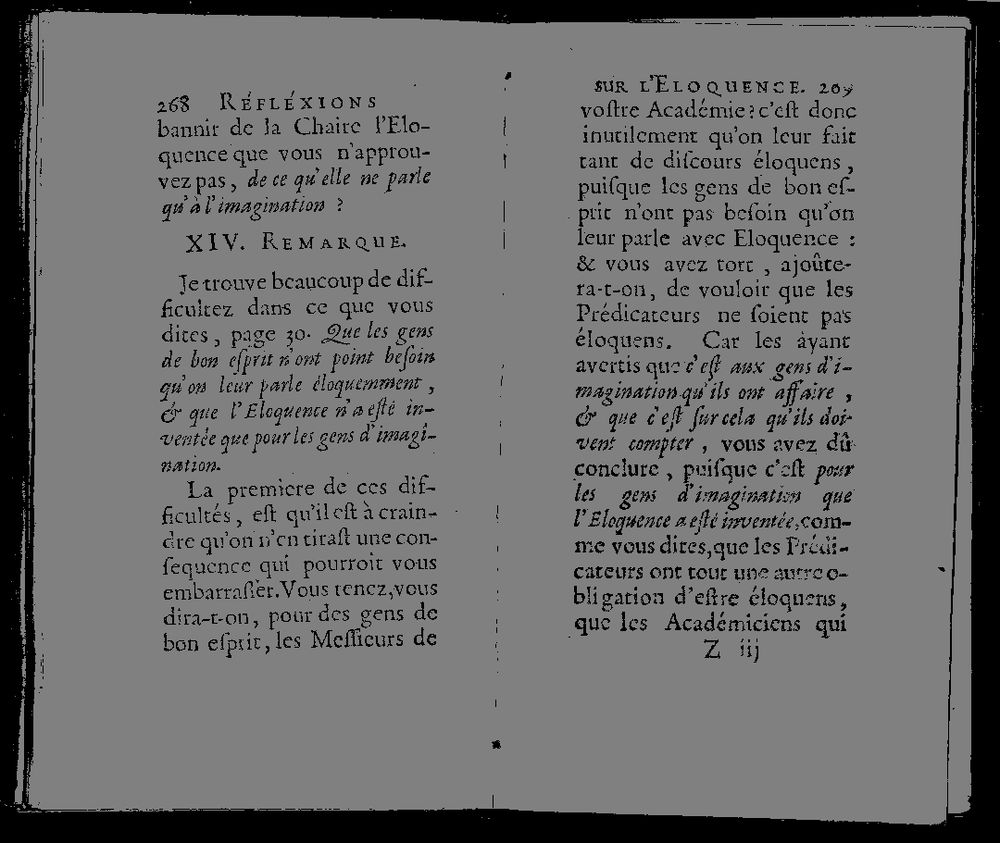 268 RÉFLÉXIONS
bannir de la Chaire l'Elo-
quence que vous n'approu-
vez pas, de ce qu'elle ne parle
qu'à l'imagination ?
XIV. REMARQUE.
Je trouve beaucoup de dif-
ficultez dans ce que vous
dites, page 30. Que les gens
de bon eſprit n'ont point beſoin
qu'on leur parle éloquemment,
& que l'Eloquence n'a eſté in-
ventée que pour les gens d'imagi-
nation.
La premiere de ces dif-
ficultés, eſt qu'il eſt à crain-
dre qu'on n'en tiraſt une con-
ſequence qui pourroit vous
embarraſſer. Vous tenez, vous
dira-t-on, pour des gens de
bon eſprit, les Meſſieurs de
SUR L'ELOQUENCE. 269
voſtre Académie? c'eſt donc
inutilement qu'on leur fait
tant de diſcours éloquens,
puiſque les gens de bon eſ-
prit n'ont pas beſoin qu'on
leur parle avec Eloquence :
& vous avez tort, ajoûte-
ra-t-on, de vouloir que les
Prédicateurs ne ſoient pas
éloquens. Car les ayant
avertis que c'eſt aux gens d'i-
magination qu'ils ont affaire,
& que c'eſt ſur cela qu'ils doi-
vent compter, vous avez dû
conclure, puiſque c'eſt pour
les gens d'imagination que
l'Eloquence a eſté inventée, com-
me vous dites, que les Prédi-
cateurs ont tout une autre o-
bligation d'eſtre éloquens,
que les Académiciens qui
Z iij